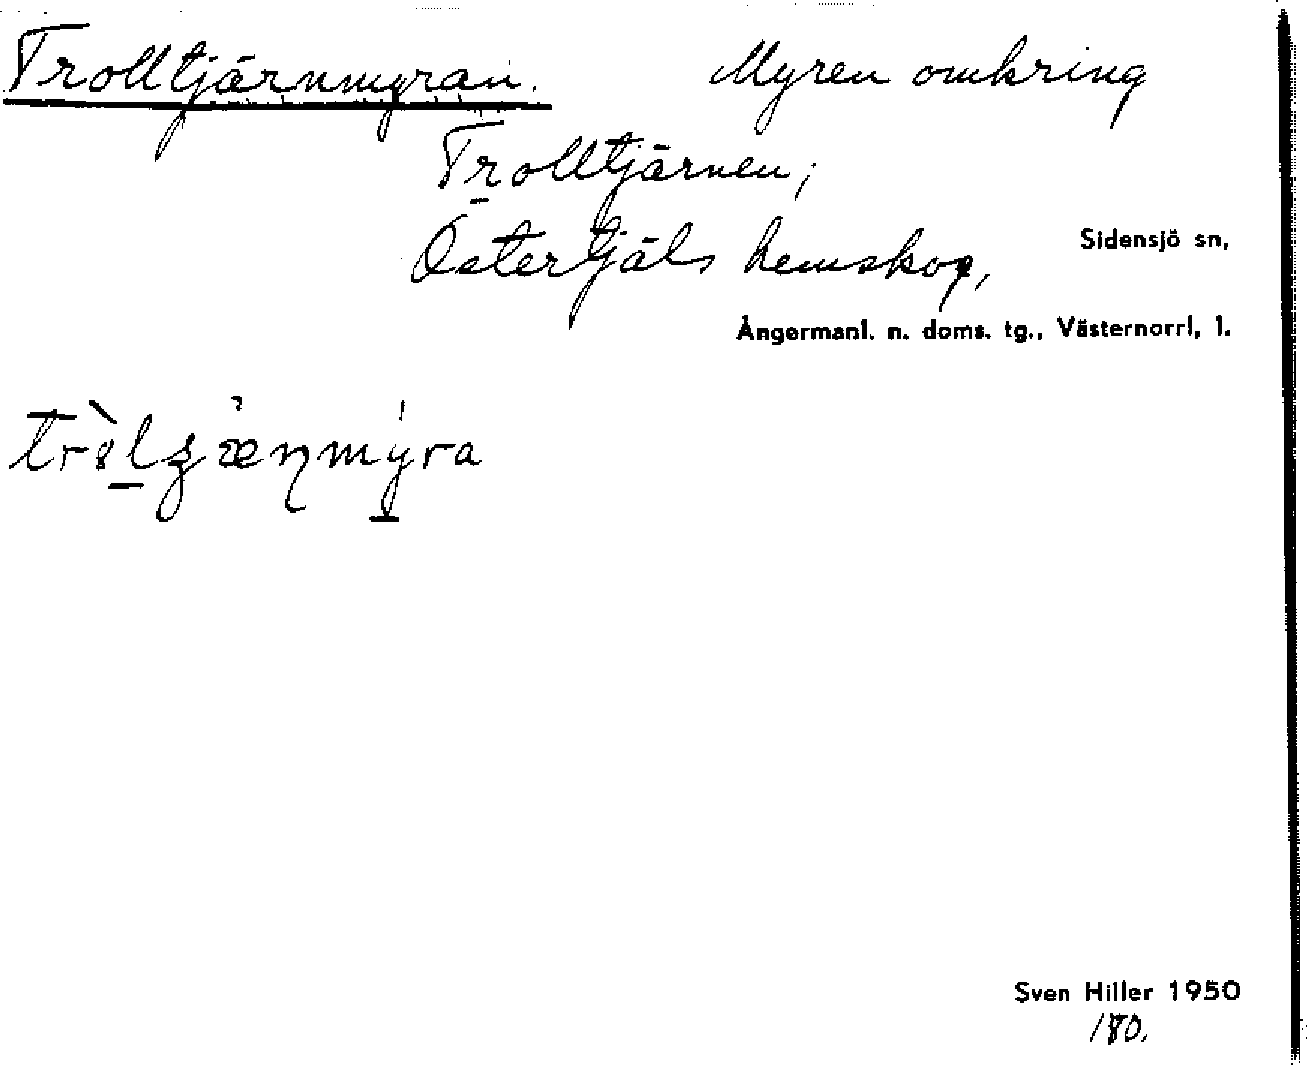 Trolltjärnmyran. Myren omkring
Trolltjärnen;
Östertjäls hemskog,
Sidensjö sn,
Ångermanl. n. doms. tg., Västernorrl, l.
Sven Hiller 1950
180.